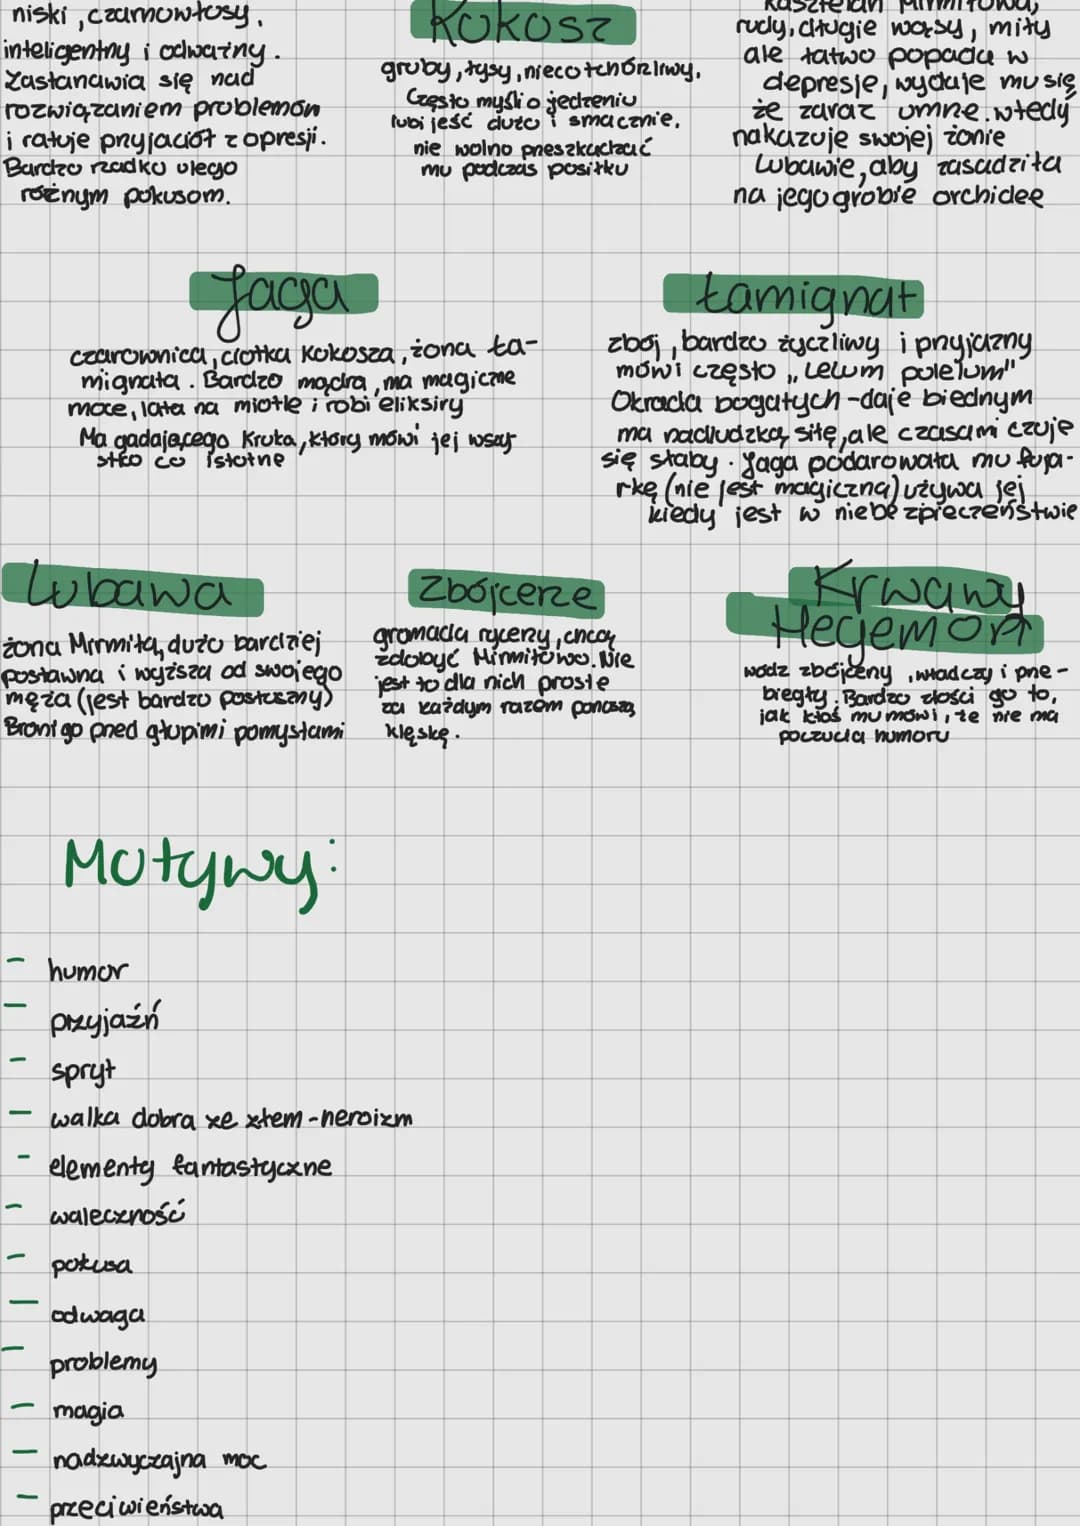 niski, czarnowłosy,
inteligentny i odważny.
Zastanawia się nad
rozwiązaniem problemów
i ratuje przyjaciół z opresji.
Bardzo rzadko ulega
różnym pokusom.
Kokosz
gruby, łysy, nieco tchórzliwy.
Często myśli o jedzeniu
lubi jeść dużo i smacznie,
nie wolno przeszkadzać
mu podczas posiłku
kasztelan Mirmiłowa,
rudy, długie wąsy, miły
ale łatwo popada w
depresje, wydaje mu się
że zaraz umrze. wtedy
nakazuje swojej żonie
Lubawie, aby zasadziła
na jego grobie orchidee
Jaga
czarownica, ciotka Kokosza, żona Ła-
mignata. Bardzo mądra, ma magiczne
moce, lata na miotle i robi eliksiry
Ma gadającego kruka, który mówi jej wszy
stko co istotne
Łamignat
zbój, bardzo życzliwy i przyjazny
mówi często „Lelum polelum"
Okrada bogatych - daje biednym
ma nadludzką siłę, ale czasami czuje
się słaby. Jaga podarowała mu fuja-
rkę (nie jest magiczna) używa jej
kiedy jest w niebezpieczeństwie
Lubawa
żona Mirmiła, dużo bardziej
postawna i wyższa od swojego
męża (jest bardzo posłuszny)
Broni go przed głupimi pomysłami
Zbójcerze
gromada rycerzy, chcą
zdobyć Mirmiłowo. Nie
jest to dla nich proste
za każdym razem ponoszą
klęskę.
Krwawy
Hegemon
wódz zbójcerzy, władczy i prze-
biegły. Bardzo złości go to,
jak ktoś mu mówi, że nie ma
poczucia humoru
Motywy:
- humor
- przyjaźń
- spryt
- walka dobra ze złem - heroizm
- elementy fantastyczne
- waleczność
- pokusa
- odwaga
- problemy
- magia
- nadzwyczajna moc
- przeciwieństwa